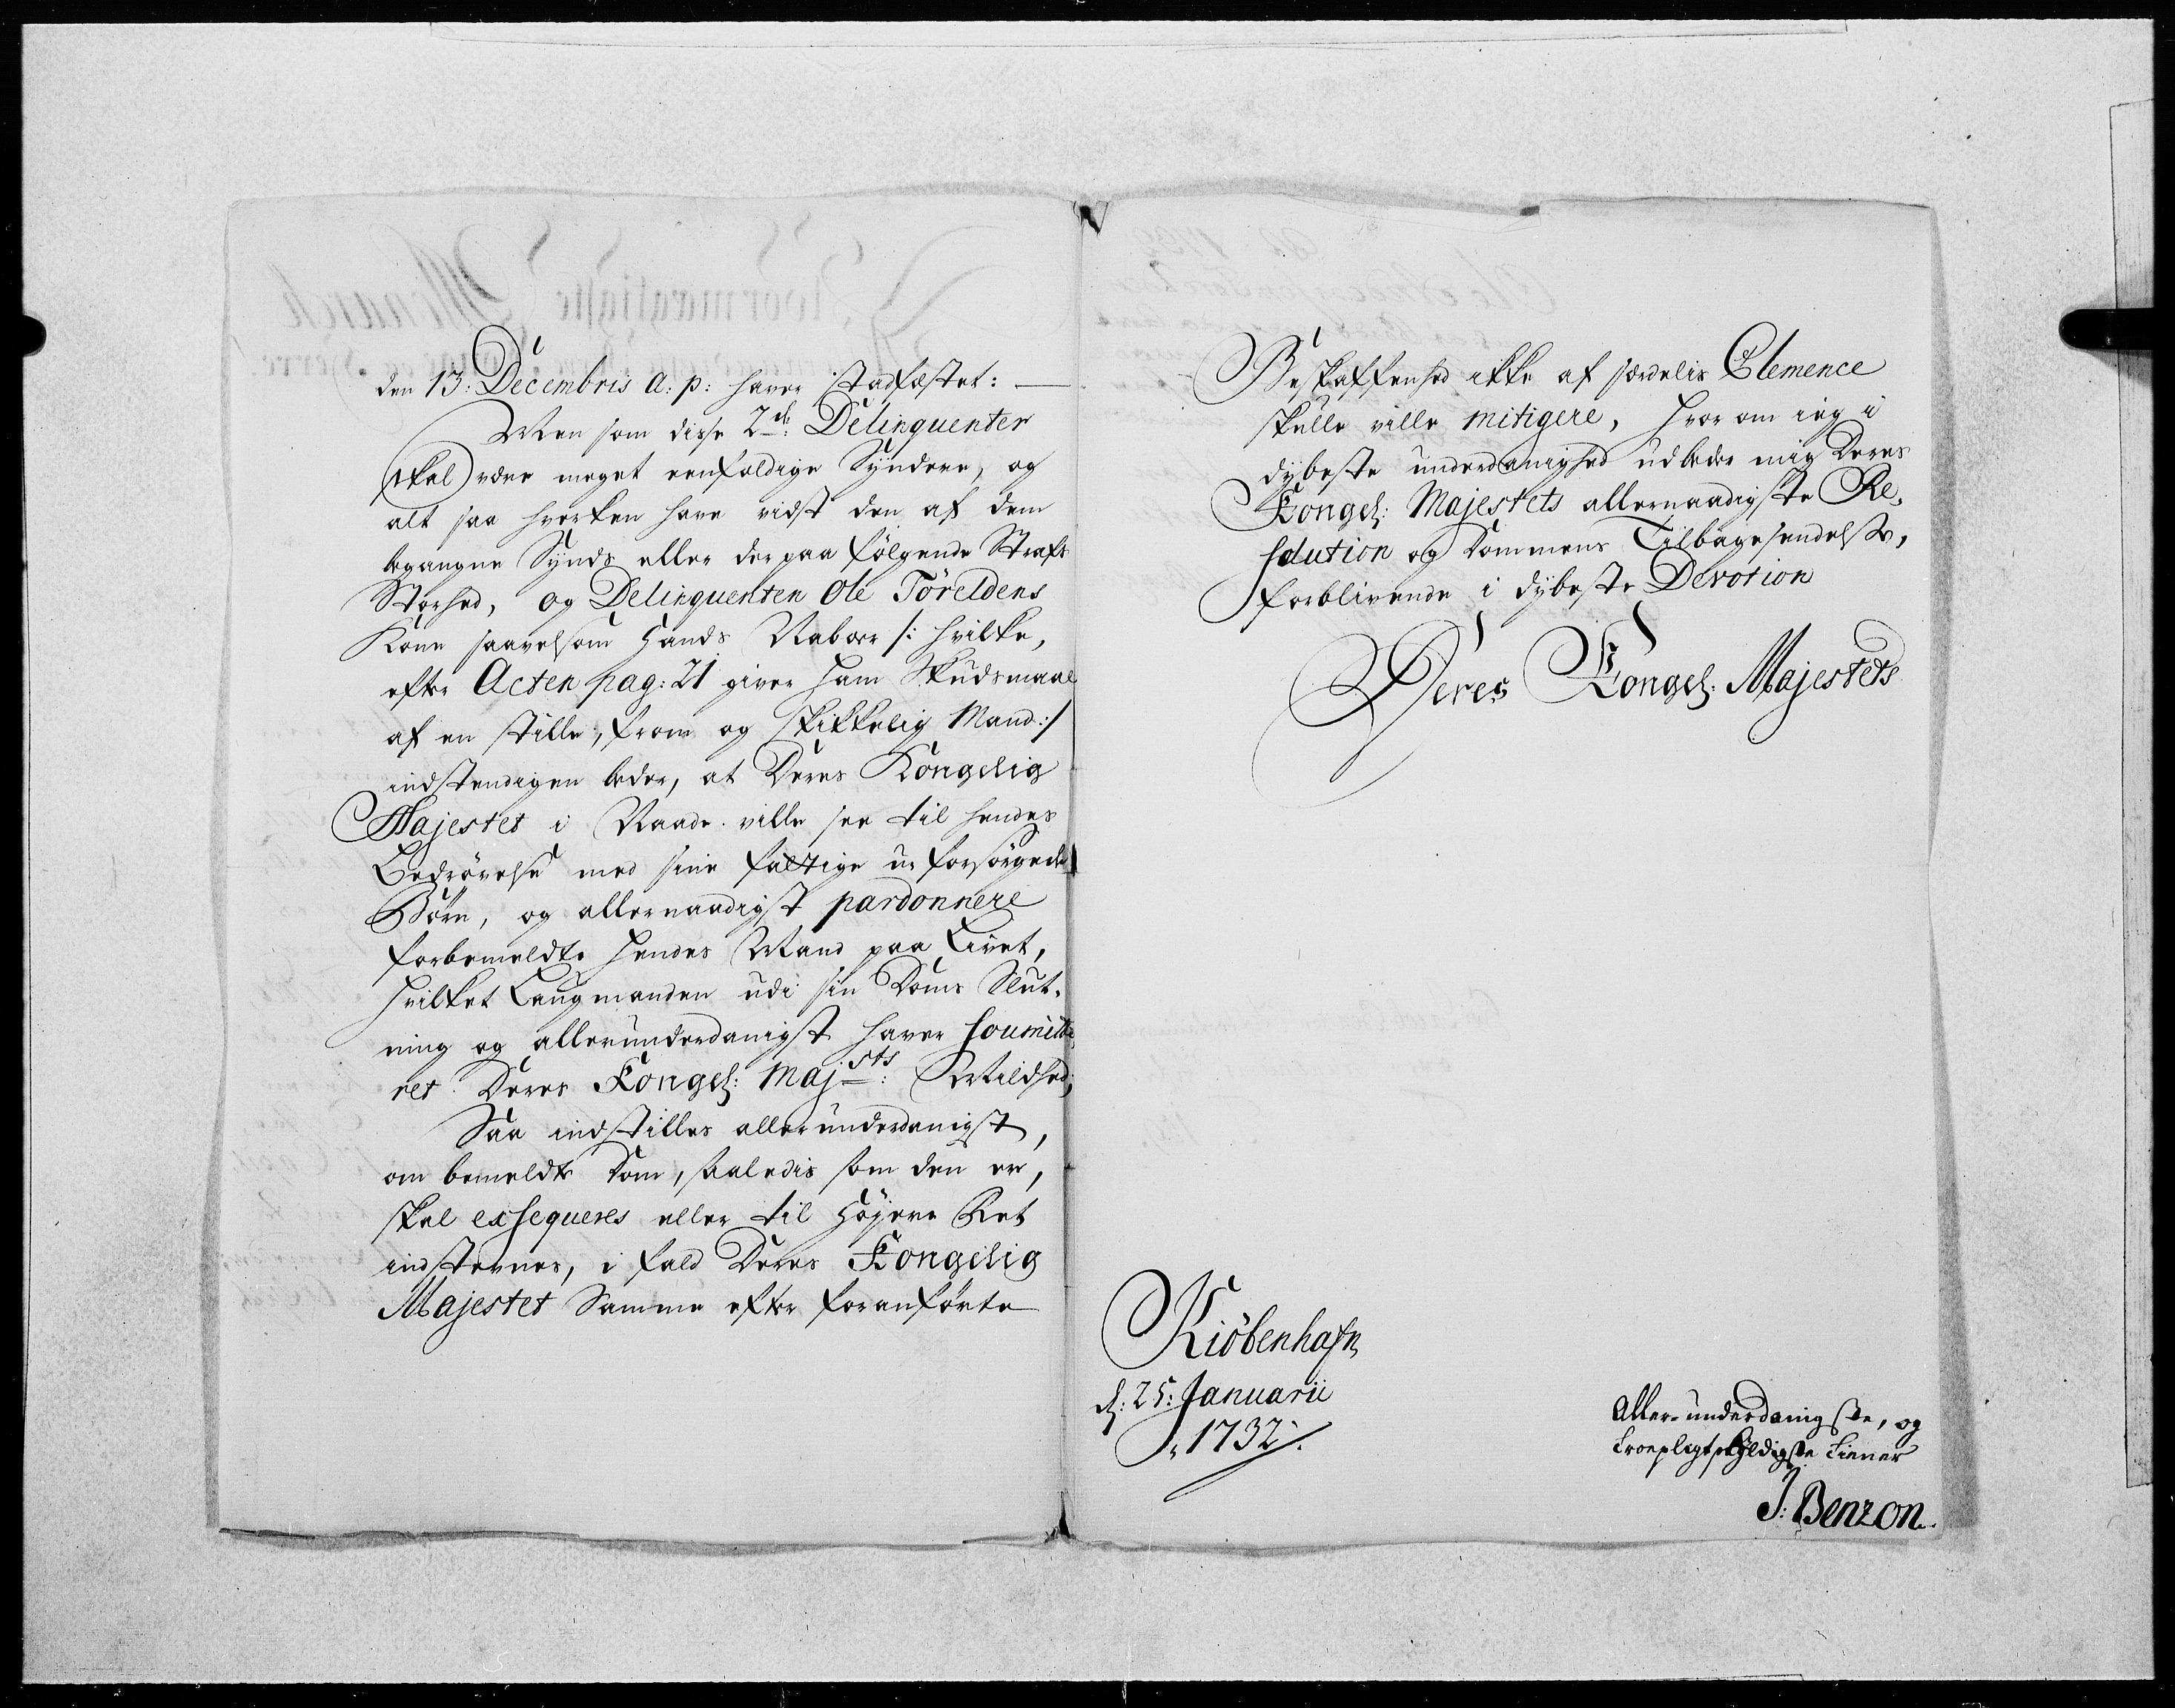 den 13: Decembris a: p: haver stadfæstet:
Men som disse 2de: Delinquenter
skal være meget eenfoldige Syndere, og
alt saa hverken have vidst den af dem
begangne Synds eller derpaa følgende Strafs
Storhed, og Delinquenten Ole Töreldens
Kone saavelsom Hands Naboer /: hvilke,
efter Acten pag: 21 giver ham Skudsmaal
af en stille, from og skikkelig Mand :/
indstendigen beder, at Deres Kongelig
Majestet i Naade ville see til hendes
Bedrøvelse med sine fattige u-forsørgede
Börn, og allernaadigst pardonnere
forbemeldte hendes Mand paa Livet,
hvilket Laugmanden udi sin Doms Slut-
ning og allerunderdanigst haver soumitte-
ret Deres Kongel: Majsts: Mildhed;
Saa indstilles allerunderdanigst,
om bemeldte Dom, saaledis som den er,
skal exsequeres eller til Höjere Ret
indstevnes, i fald Deres Kongelig
Majestet Samme efter foranförte
Beskaffenhed ikke af særdelis Clemence
skulle ville mitigere, hvor om ieg i
dybeste underdanighed udbeder mig Deres
Kongel: Majestets allernaadigste Re-
solution og Dommens Tilbagesendelse,
forblivende i dybeste Devotion
Deres Kongel: Majestets
Kiöbenhafn
d: 25: Januarii
1732.
Aller-underdanigste, og
troepligtskyldigste tiener
J: Benzon.